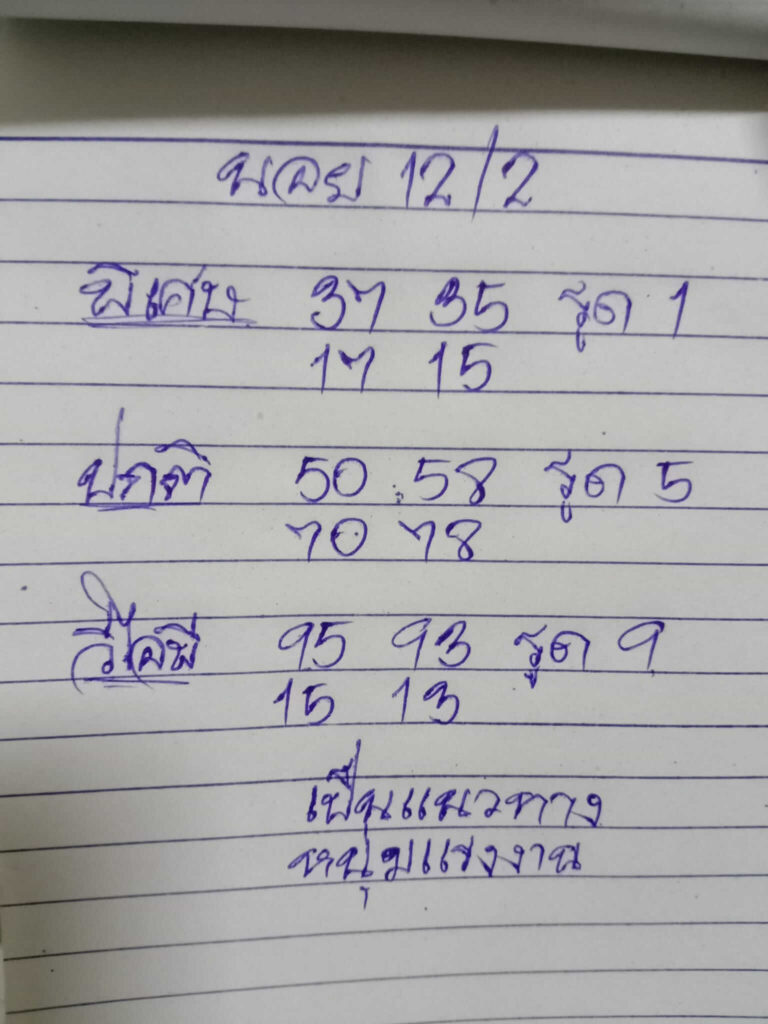 นอย 12/2
พิเศษ 37 35 รูด 1
17 15
ปกติ 50 58 รูด 5
70 78
วีไอพี 95 93 รูด 9
15 13
เป็นแนวทาง
หนุ่มแรงงาน